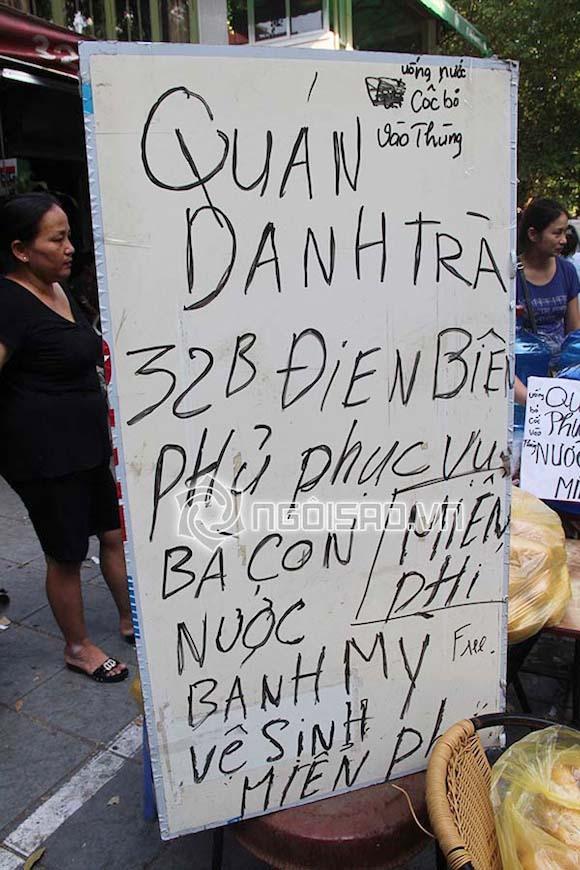 uống nước
Cốc bỏ
vào Thùng
QUÁN
DANH TRÀ
32B ĐIỆN BIÊN
PHỦ phục vụ
BÀ CON MIỄN
PHI
NƯỚC
BANH MY Free.
vệ SINH
MIỄN PHI
NGÔISAO.VN
uống
bỏ
cốc
vào
Thùng
QUÁ
Phụ
NƯỚC
MI
32